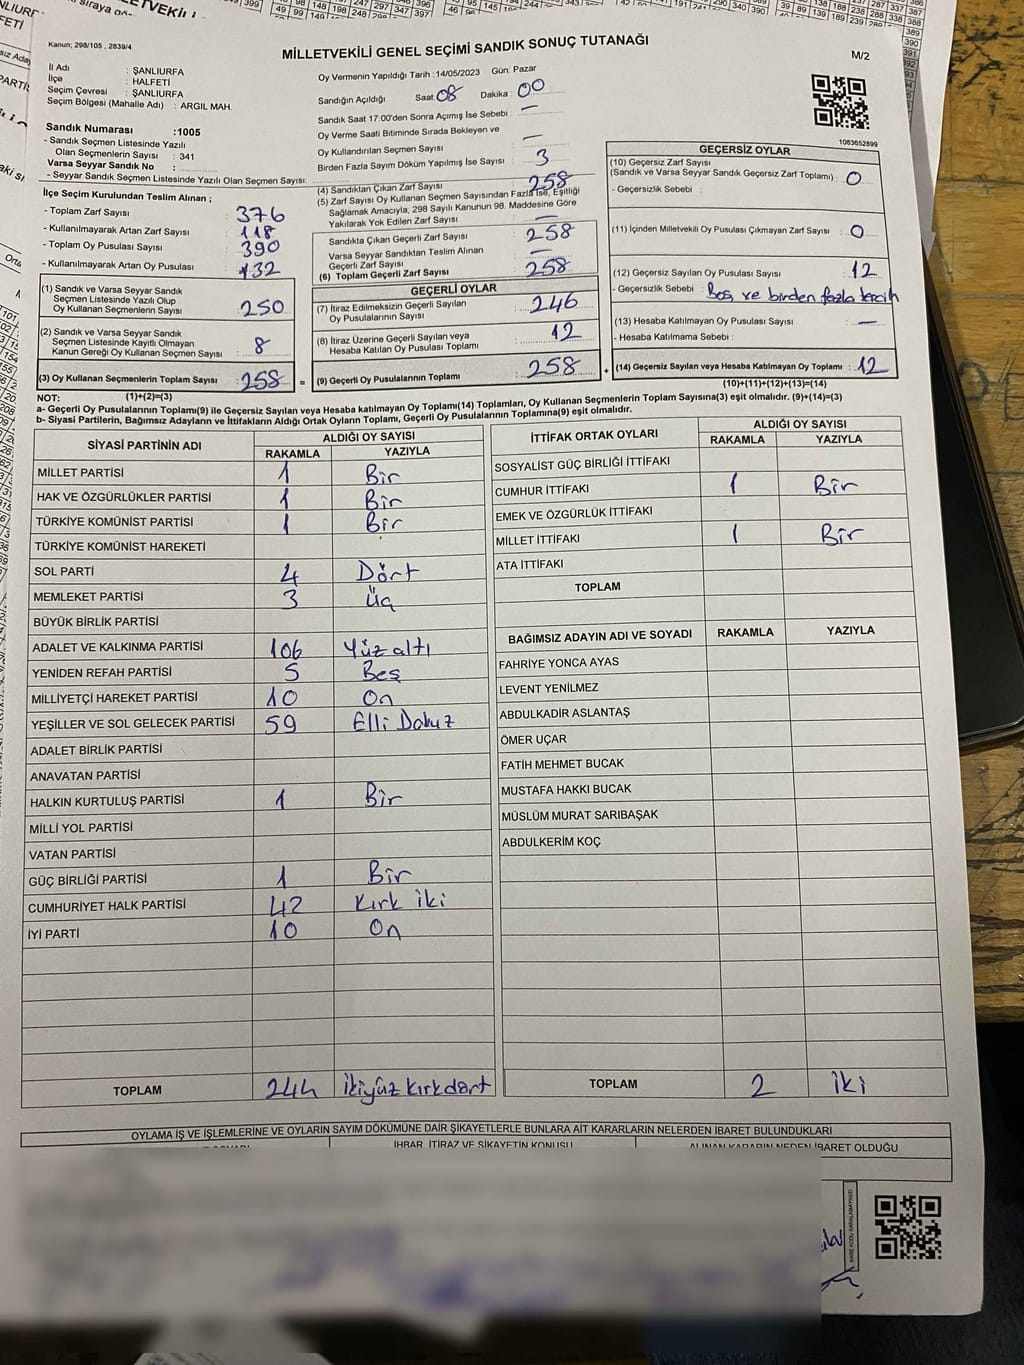 Kanun; 298/105 , 2839/4
MİLLETVEKİLİ GENEL SEÇİMİ SANDIK SONUÇ TUTANAĞI
M/2
İl Adı : ŞANLIURFA
İlçe : HALFETİ
Seçim Çevresi : ŞANLIURFA
Seçim Bölgesi (Mahalle Adı) : ARGIL MAH.
Sandık Numarası :1005
- Sandık Seçmen Listesinde Yazılı
Olan Seçmenlerin Sayısı : 341
Varsa Seyyar Sandık No :
- Seyyar Sandık Seçmen Listesinde Yazılı Olan Seçmen Sayısı:
Oy Vermenin Yapıldığı Tarih :14/05/2023 Gün: Pazar
Sandığın Açıldığı Saat: 08 Dakika : 00
Sandık Saat 17:00'den Sonra Açımış İse Sebebi : —
Oy Verme Saati Bitiminde Sırada Bekleyen ve
Oy Kullandırılan Seçmen Sayısı : —
Birden Fazla Sayım Döküm Yapılmış İse Sayısı : 3
1083652899
İlçe Seçim Kurulundan Teslim Alınan ;
- Toplam Zarf Sayısı : 376
- Kullanılmayarak Artan Zarf Sayısı : 118
- Toplam Oy Pusulası Sayısı : 390
- Kullanılmayarak Artan Oy Pusulası : 132
(1) Sandık ve Varsa Seyyar Sandık
Seçmen Listesinde Yazılı Olup
Oy Kullanan Seçmenlerin Sayısı : 250
(2) Sandık ve Varsa Seyyar Sandık
Seçmen Listesinde Kayıtlı Olmayan
Kanun Gereği Oy Kullanan Seçmen Sayısı : 8
(3) Oy Kullanan Seçmenlerin Toplam Sayısı : 258
(1)+(2)=(3)
(4) Sandıktan Çıkan Zarf Sayısı : 258
(5) Zarf Sayısı Oy Kullanan Seçmen Sayısından Fazla İse, Eşitliği
Sağlamak Amacıyla, 298 Sayılı Kanunun 98. Maddesine Göre
Yakılarak Yok Edilen Zarf Sayısı : —
Sandıkta Çıkan Geçerli Zarf Sayısı : 258
Varsa Seyyar Sandıktan Teslim Alınan
Geçerli Zarf Sayısı : —
(6) Toplam Geçerli Zarf Sayısı : 258
GEÇERLİ OYLAR
(7) İtiraz Edilmeksizin Geçerli Sayılan
Oy Pusulalarının Sayısı : 246
(8) İtiraz Üzerine Geçerli Sayılan veya
Hesaba Katılan Oy Pusulası Toplamı : 12
= (9) Geçerli Oy Pusulalarının Toplamı : 258
GEÇERSİZ OYLAR
(10) Geçersiz Zarf Sayısı
(Sandık ve Varsa Seyyar Sandık Geçersiz Zarf Toplamı) : 0
- Geçersizlik Sebebi :
(11) İçinden Milletvekili Oy Pusulası Çıkmayan Zarf Sayısı : 0
(12) Geçersiz Sayılan Oy Pusulası Sayısı : 12
- Geçersizlik Sebebi : Boş ve birden fazla tercih
(13) Hesaba Katılmayan Oy Pusulası Sayısı : —
- Hesaba Katılmama Sebebi :
+ (14) Geçersiz Sayılan veya Hesaba Katılmayan Oy Toplamı : 12
(10)+(11)+(12)+(13)=(14)
NOT:
a- Geçerli Oy Pusulalarının Toplamı(9) ile Geçersiz Sayılan veya Hesaba katılmayan Oy Toplamı(14) Toplamları, Oy Kullanan Seçmenlerin Toplam Sayısına(3) eşit olmalıdır. (9)+(14)=(3)
b- Siyasi Partilerin, Bağımsız Adayların ve İttifakların Aldığı Ortak Oyların Toplamı, Geçerli Oy Pusulalarının Toplamına(9) eşit olmalıdır.
SİYASİ PARTİNİN ADI ALDIĞI OY SAYISI
RAKAMLA YAZIYLA
MİLLET PARTİSİ 1 Bir
HAK VE ÖZGÜRLÜKLER PARTİSİ 1 Bir
TÜRKİYE KOMÜNİST PARTİSİ 1 Bir
TÜRKİYE KOMÜNİST HAREKETİ
SOL PARTİ 4 Dört
MEMLEKET PARTİSİ 3 Üç
BÜYÜK BİRLİK PARTİSİ
ADALET VE KALKINMA PARTİSİ 106 Yüz altı
YENİDEN REFAH PARTİSİ 5 Beş
MİLLİYETÇİ HAREKET PARTİSİ 10 On
YEŞİLLER VE SOL GELECEK PARTİSİ 59 Elli Dokuz
ADALET BİRLİK PARTİSİ
ANAVATAN PARTİSİ
HALKIN KURTULUŞ PARTİSİ 1 Bir
MİLLİ YOL PARTİSİ
VATAN PARTİSİ
GÜÇ BİRLİĞİ PARTİSİ 1 Bir
CUMHURİYET HALK PARTİSİ 42 Kırk iki
İYİ PARTİ 10 On
TOPLAM 244 İkiyüz kırkdört
İTTİFAK ORTAK OYLARI ALDIĞI OY SAYISI
RAKAMLA YAZIYLA
SOSYALİST GÜÇ BİRLİĞİ İTTİFAKI
CUMHUR İTTİFAKI 1 Bir
EMEK VE ÖZGÜRLÜK İTTİFAKI
MİLLET İTTİFAKI 1 Bir
ATA İTTİFAKI
TOPLAM
BAĞIMSIZ ADAYIN ADI VE SOYADI RAKAMLA YAZIYLA
FAHRİYE YONCA AYAS
LEVENT YENİLMEZ
ABDULKADİR ASLANTAŞ
ÖMER UÇAR
FATİH MEHMET BUCAK
MUSTAFA HAKKI BUCAK
MÜSLÜM MURAT SARIBAŞAK
ABDULKERİM KOÇ
TOPLAM 2 iki
OYLAMA İŞ VE İŞLEMLERİNE VE OYLARIN SAYIM DÖKÜMÜNE DAİR ŞİKAYETLERLE BUNLARA AİT KARARLARIN NELERDEN İBARET BULUNDUKLARI
İHBAR, İTİRAZ VE ŞİKAYETİN KONUSU
ALINAN KARARIN NEDEN İBARET OLDUĞU